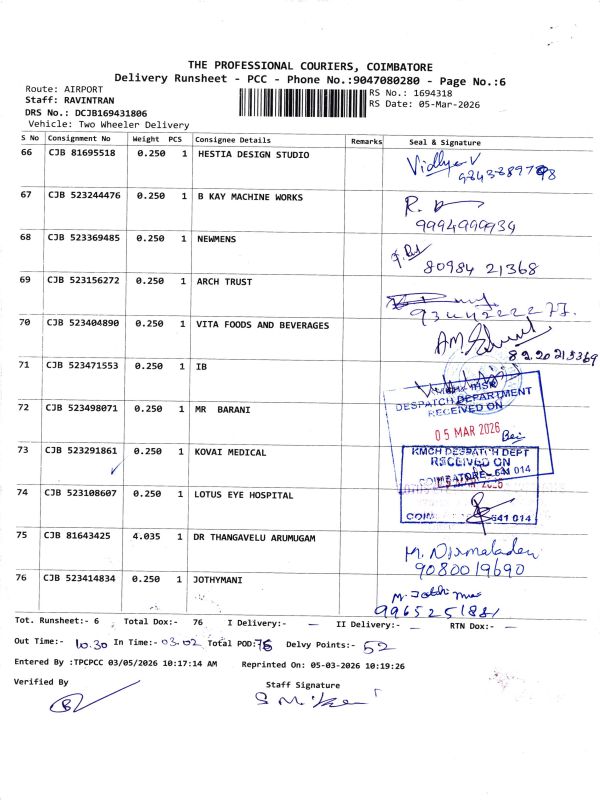 THE PROFESSIONAL COURIERS, COIMBATORE
Delivery Runsheet - PCC - Phone No.:9047080280 - Page No.:6
Route: AIRPORT
RS No.: 1694318
Staff: RAVINTRAN
RS Date: 05-Mar-2026
DRS No.: DCJB169431806
Vehicle: Two Wheeler Delivery
S No Consignment No Weight PCS Consignee Details Remarks Seal & Signature
66 CJB 81695518 0.250 1 HESTIA DESIGN STUDIO
Vidhya V
67 CJB 523244476 0.250 1 B KAY MACHINE WORKS
9994999934
68 CJB 523369485 0.250 1 NEWMENS
80984 21368
69 CJB 523156272 0.250 1 ARCH TRUST
70 CJB 523404890 0.250 1 VITA FOODS AND BEVERAGES
71 CJB 523471553 0.250 1 IB
DESPATCH DEPARTMENT
RECEIVED ON
72 CJB 523498071 0.250 1 MR BARANI
05 MAR 2026
73 CJB 523291861 0.250 1 KOVAI MEDICAL
KMCH DESPATCH DEPT
RECEIVED ON
COIMBATORE - 641 014
74 CJB 523108607 0.250 1 LOTUS EYE HOSPITAL
641 014
75 CJB 81643425 4.035 1 DR THANGAVELU ARUMUGAM
9080019690
76 CJB 523414834 0.250 1 JOTHYMANI
Tot. Runsheet:- 6 Total Dox:- 76 I Delivery:- — II Delivery:- — RTN Dox:- —
Out Time:- 10.30 In Time:- 03.02 Total POD:76 Delvy Points:- 52
Entered By :TPCPCC 03/05/2026 10:17:14 AM Reprinted On: 05-03-2026 10:19:26
Verified By
Staff Signature